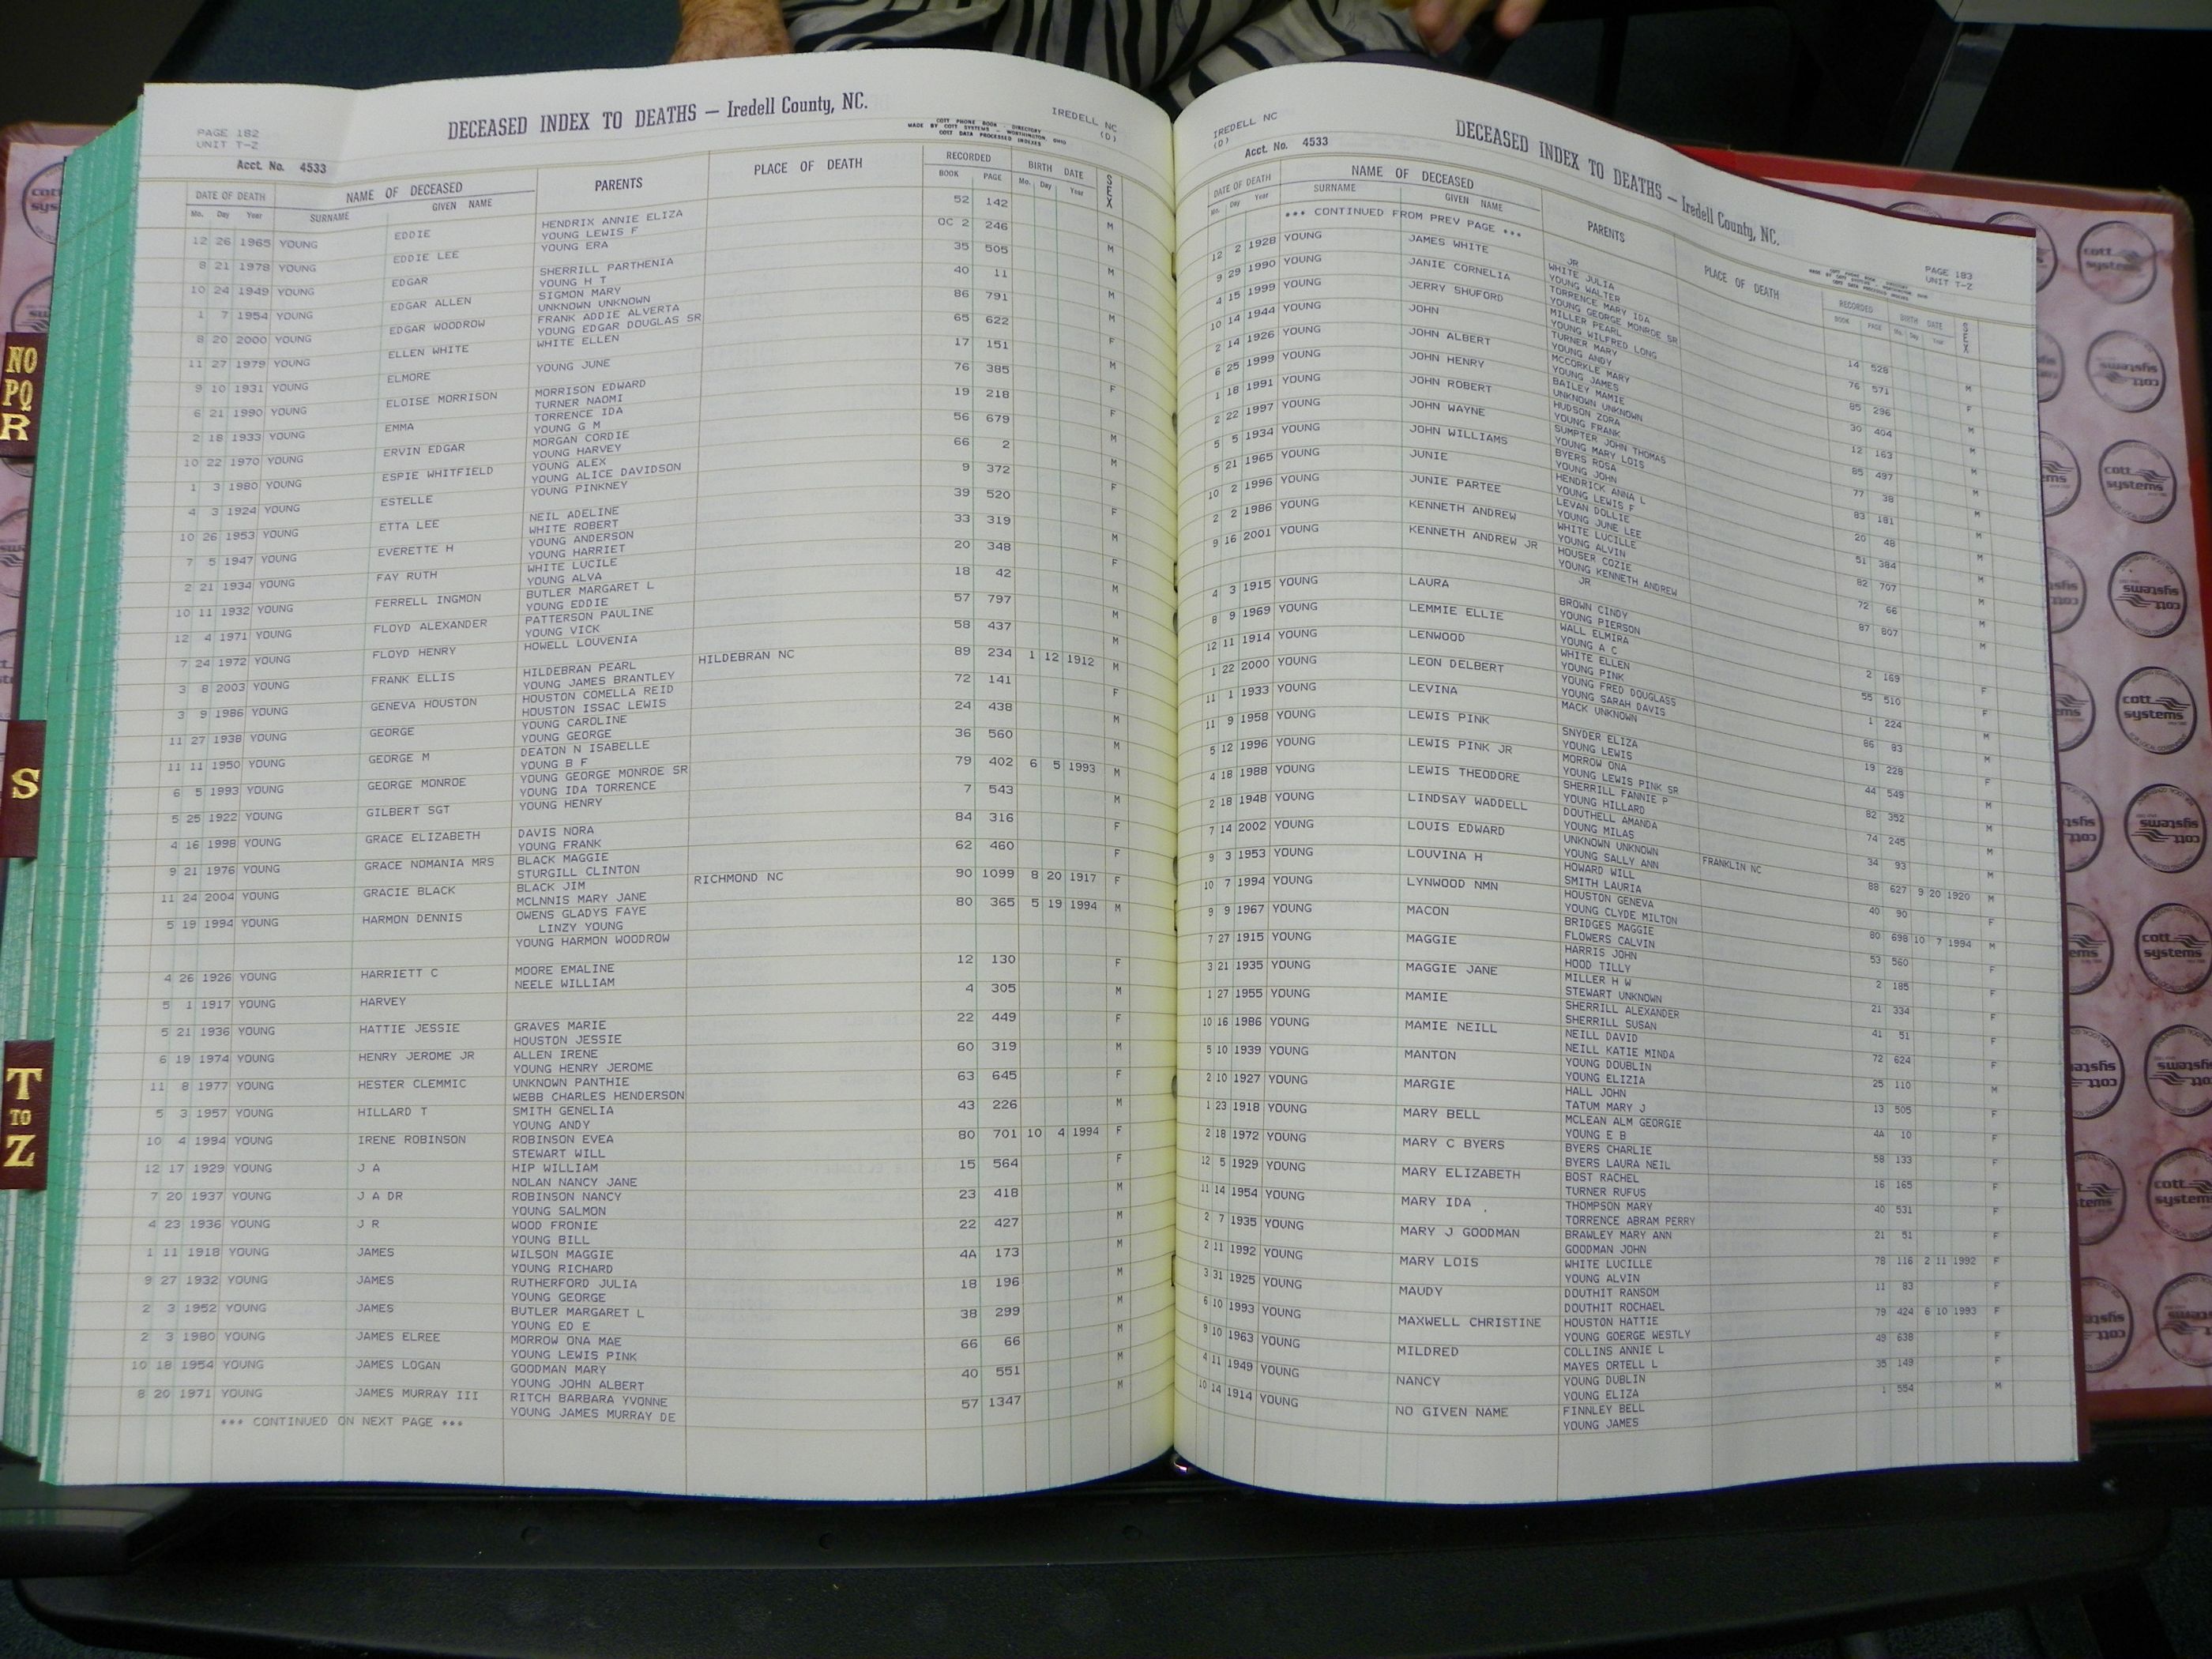 PAGE 182
UNIT T-Z
DECEASED INDEX TO DEATHS — Iredell County, NC.
COTT PHONE BOOK - DIRECTORY
MADE BY COTT SYSTEMS - WORTHINGTON, OHIO
COTT DATA PROCESSED INDEXES
IREDELL NC
(D)
Acct. No. 4533
DATE OF DEATH NAME OF DECEASED PARENTS PLACE OF DEATH RECORDED BIRTH DATE SEX
Mo. Day Year SURNAME GIVEN NAME BOOK PAGE Mo. Day Year
12 26 1965 YOUNG EDDIE HENDRIX ANNIE ELIZA 52 142 M
YOUNG LEWIS F
8 21 1978 YOUNG EDDIE LEE YOUNG ERA OC 2 246 M
10 24 1949 YOUNG EDGAR SHERRILL PARTHENIA 35 505 M
YOUNG H T
1 7 1954 YOUNG EDGAR ALLEN SIGMON MARY 40 11 M
UNKNOWN UNKNOWN
8 20 2000 YOUNG EDGAR WOODROW FRANK ADDIE ALVERTA 86 791 M
YOUNG EDGAR DOUGLAS SR
11 27 1979 YOUNG ELLEN WHITE WHITE ELLEN 65 622 F
9 10 1931 YOUNG ELMORE YOUNG JUNE 17 151 M
6 21 1990 YOUNG ELOISE MORRISON MORRISON EDWARD 76 385 F
TURNER NAOMI
2 18 1933 YOUNG EMMA TORRENCE IDA 19 218 F
YOUNG G M
10 22 1970 YOUNG ERVIN EDGAR MORGAN CORDIE 56 679 M
YOUNG HARVEY
1 3 1980 YOUNG ESPIE WHITFIELD YOUNG ALEX 66 2 M
YOUNG ALICE DAVIDSON
4 3 1924 YOUNG ESTELLE YOUNG PINKNEY 9 372 F
10 26 1953 YOUNG ETTA LEE NEIL ADELINE 39 520 F
WHITE ROBERT
7 5 1947 YOUNG EVERETTE H YOUNG ANDERSON 33 319 M
YOUNG HARRIET
2 21 1934 YOUNG FAY RUTH WHITE LUCILE 20 348 F
YOUNG ALVA
10 11 1932 YOUNG FERRELL INGMON BUTLER MARGARET L 18 42 M
YOUNG EDDIE
12 4 1971 YOUNG FLOYD ALEXANDER PATTERSON PAULINE 57 797 M
YOUNG VICK
7 24 1972 YOUNG FLOYD HENRY HOWELL LOUVENIA 58 437 M
3 8 2003 YOUNG FRANK ELLIS HILDEBRAN PEARL HILDEBRAN NC 89 234 1 12 1912 M
YOUNG JAMES BRANTLEY
3 9 1986 YOUNG GENEVA HOUSTON HOUSTON COMELLA REID 72 141 F
HOUSTON ISSAC LEWIS
11 27 1938 YOUNG GEORGE YOUNG CAROLINE 24 438 M
YOUNG GEORGE
11 11 1950 YOUNG GEORGE M DEATON N ISABELLE 36 560
YOUNG B F
6 5 1993 YOUNG GEORGE MONROE YOUNG GEORGE MONROE SR 79 402 6 5 1993 M
YOUNG IDA TORRENCE
5 25 1922 YOUNG GILBERT SGT YOUNG HENRY 7 543 M
4 16 1998 YOUNG GRACE ELIZABETH DAVIS NORA 84 316 F
YOUNG FRANK
9 21 1976 YOUNG GRACE NOMANIA MRS BLACK MAGGIE 62 460 F
STURGILL CLINTON
11 24 2004 YOUNG GRACIE BLACK BLACK JIM RICHMOND NC 90 1099 8 20 1917 F
MCLNNIS MARY JANE
5 19 1994 YOUNG HARMON DENNIS OWENS GLADYS FAYE 80 365 5 19 1994 M
LINZY YOUNG
YOUNG HARMON WOODROW
4 26 1926 YOUNG HARRIETT C MOORE EMALINE 12 130 F
NEELE WILLIAM
5 1 1917 YOUNG HARVEY 4 305 M
5 21 1936 YOUNG HATTIE JESSIE GRAVES MARIE 22 449 F
HOUSTON JESSIE
6 19 1974 YOUNG HENRY JEROME JR ALLEN IRENE 60 319 M
YOUNG HENRY JEROME
11 8 1977 YOUNG HESTER CLEMMIC UNKNOWN PANTHIE 63 645 F
WEBB CHARLES HENDERSON
5 3 1957 YOUNG HILLARD T SMITH GENELIA 43 226 M
YOUNG ANDY
10 4 1994 YOUNG IRENE ROBINSON ROBINSON EVEA 80 701 10 4 1994 F
STEWART WILL
12 17 1929 YOUNG J A HIP WILLIAM 15 564 F
NOLAN NANCY JANE
7 20 1937 YOUNG J A DR ROBINSON NANCY 23 418 M
YOUNG SALMON
4 23 1936 YOUNG J R WOOD FRONIE 22 427 M
YOUNG BILL
1 11 1918 YOUNG JAMES WILSON MAGGIE 4A 173 M
YOUNG RICHARD
9 27 1932 YOUNG JAMES RUTHERFORD JULIA 18 196 M
YOUNG GEORGE
2 3 1952 YOUNG JAMES BUTLER MARGARET L 38 299 M
YOUNG ED E
2 3 1980 YOUNG JAMES ELREE MORROW ONA MAE 66 66 M
YOUNG LEWIS PINK
10 18 1954 YOUNG JAMES LOGAN GOODMAN MARY 40 551 M
YOUNG JOHN ALBERT
8 20 1971 YOUNG JAMES MURRAY III RITCH BARBARA YVONNE 57 1347 M
YOUNG JAMES MURRAY DE
*** CONTINUED ON NEXT PAGE ***
IREDELL NC
(D)
Acct. No. 4533
DECEASED INDEX TO DEATHS — Iredell County, NC.
PAGE 183
UNIT T-Z
DATE OF DEATH NAME OF DECEASED PARENTS PLACE OF DEATH RECORDED BIRTH DATE SEX
Mo. Day Year SURNAME GIVEN NAME BOOK PAGE Mo. Day Year
*** CONTINUED FROM PREV PAGE ***
JR
12 2 1928 YOUNG JAMES WHITE WHITE JULIA 14 528 M
YOUNG WALTER
9 29 1990 YOUNG JANIE CORNELIA TORRENCE MARY IDA 76 571 F
YOUNG GEORGE MONROE SR
4 15 1999 YOUNG JERRY SHUFORD MILLER PEARL 85 296 M
YOUNG WILFRED LONG
10 14 1944 YOUNG JOHN TURNER MARY 30 404 M
YOUNG ANDY
2 14 1926 YOUNG JOHN ALBERT MCCORKLE MARY 12 163 M
YOUNG JAMES
6 25 1999 YOUNG JOHN HENRY BAILEY MAMIE 85 497 M
UNKNOWN UNKNOWN
1 18 1991 YOUNG JOHN ROBERT HUDSON ZORA 77 38 M
YOUNG FRANK
2 22 1997 YOUNG JOHN WAYNE SUMPTER JOHN THOMAS 83 181 M
YOUNG MARY LOIS
5 5 1934 YOUNG JOHN WILLIAMS BYERS ROSA 20 48 M
YOUNG JOHN
5 21 1965 YOUNG JUNIE HENDRICK ANNA L 51 384 M
YOUNG LEWIS F
10 2 1996 YOUNG JUNIE PARTEE LEVAN DOLLIE 82 707 M
YOUNG JUNE LEE
2 2 1986 YOUNG KENNETH ANDREW WHITE LUCILLE 72 66 M
YOUNG ALVIN
9 16 2001 YOUNG KENNETH ANDREW JR HOUSER COZIE 87 807 M
YOUNG KENNETH ANDREW
JR
4 3 1915 YOUNG LAURA BROWN CINDY 2 169 F
YOUNG PIERSON
8 9 1969 YOUNG LEMMIE ELLIE WALL ELMIRA 55 510 F
YOUNG A C
12 11 1914 YOUNG LENWOOD WHITE ELLEN 1 224 M
YOUNG PINK
1 22 2000 YOUNG LEON DELBERT YOUNG FRED DOUGLASS 86 83 M
YOUNG SARAH DAVIS
11 1 1933 YOUNG LEVINA MACK UNKNOWN 19 228 F
11 9 1958 YOUNG LEWIS PINK SNYDER ELIZA 44 549 M
YOUNG LEWIS
5 12 1996 YOUNG LEWIS PINK JR MORROW ONA 82 352 M
YOUNG LEWIS PINK SR
4 18 1988 YOUNG LEWIS THEODORE SHERRILL FANNIE P 74 245 M
YOUNG HILLARD
2 18 1948 YOUNG LINDSAY WADDELL DOUTHELL AMANDA 34 93 M
YOUNG MILAS
7 14 2002 YOUNG LOUIS EDWARD UNKNOWN UNKNOWN FRANKLIN NC 88 627 9 20 1920 M
YOUNG SALLY ANN
9 3 1953 YOUNG LOUVINA H HOWARD WILL 40 90 F
SMITH LAURIA
10 7 1994 YOUNG LYNWOOD NMN HOUSTON GENEVA 80 698 10 7 1994 M
YOUNG CLYDE MILTON
9 9 1967 YOUNG MACON BRIDGES MAGGIE 53 560 F
FLOWERS CALVIN
7 27 1915 YOUNG MAGGIE HARRIS JOHN 2 185 F
HOOD TILLY
3 21 1935 YOUNG MAGGIE JANE MILLER H W 21 334 F
STEWART UNKNOWN
1 27 1955 YOUNG MAMIE SHERRILL ALEXANDER 41 51 F
SHERRILL SUSAN
10 16 1986 YOUNG MAMIE NEILL NEILL DAVID 72 624 F
NEILL KATIE MINDA
5 10 1939 YOUNG MANTON YOUNG DOUBLIN 25 110 M
YOUNG ELIZIA
2 10 1927 YOUNG MARGIE HALL JOHN 13 505 F
TATUM MARY J
1 23 1918 YOUNG MARY BELL MCLEAN ALM GEORGIE 4A 10 F
YOUNG E B
2 18 1972 YOUNG MARY C BYERS BYERS CHARLIE 58 133 F
BYERS LAURA NEIL
12 5 1929 YOUNG MARY ELIZABETH BOST RACHEL 16 165 F
TURNER RUFUS
11 14 1954 YOUNG MARY IDA THOMPSON MARY 40 531 F
TORRENCE ABRAM PERRY
2 7 1935 YOUNG MARY J GOODMAN BRAWLEY MARY ANN 21 51 F
GOODMAN JOHN
2 11 1992 YOUNG MARY LOIS WHITE LUCILLE 78 116 2 11 1992 F
YOUNG ALVIN
3 31 1925 YOUNG MAUDY DOUTHIT RANSOM 11 83 F
DOUTHIT ROCHAEL
6 10 1993 YOUNG MAXWELL CHRISTINE HOUSTON HATTIE 79 424 6 10 1993 F
YOUNG GOERGE WESTLY
9 10 1963 YOUNG MILDRED COLLINS ANNIE L 49 638 F
MAYES ORTELL L
4 11 1949 YOUNG NANCY YOUNG DUBLIN 35 149 F
YOUNG ELIZA
10 14 1914 YOUNG NO GIVEN NAME FINNLEY BELL 1 554 M
YOUNG JAMES
NO
PQ
R
S
T
TO
Z
cott
systems